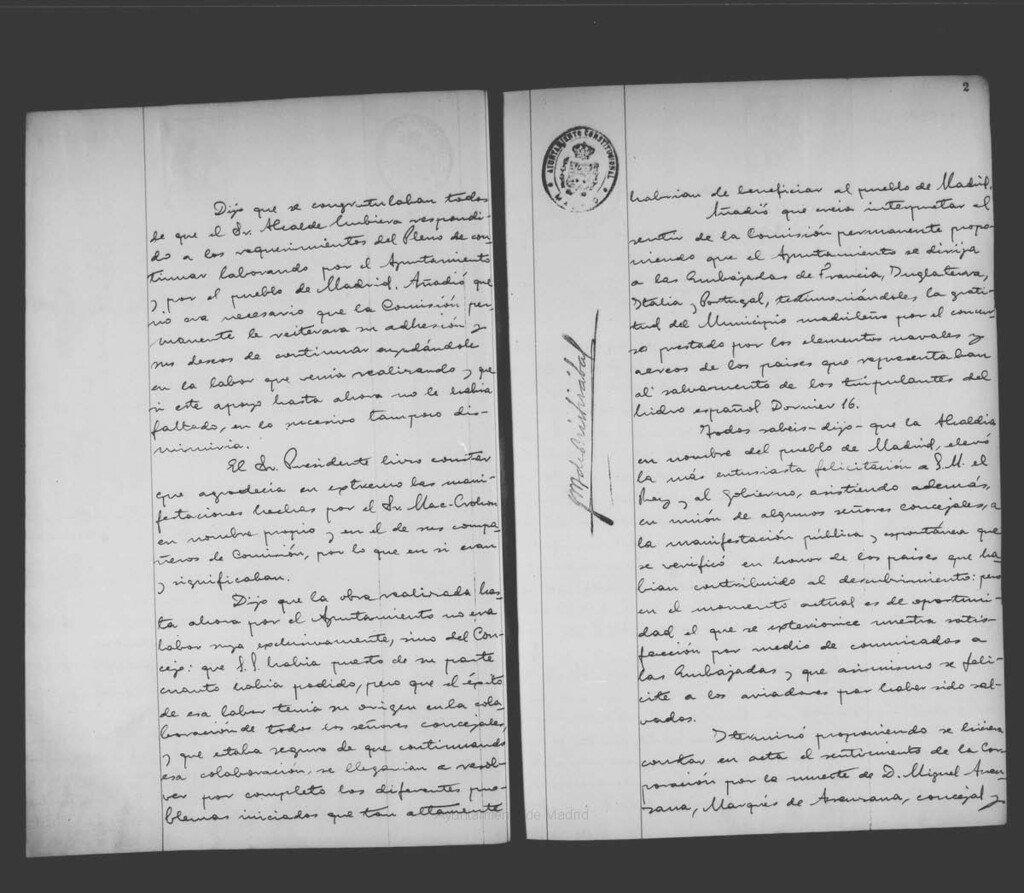 Dijo que se congratulaban todos
de que el Sr. Alcalde hubiera respondi-
do a los requerimientos del Pleno de con-
tinuar laborando por el Ayuntamiento
y por el pueblo de Madrid. Añadió que
no era necesario que la Comisión per-
manente le reiterara su adhesión y
sus deseos de continuar ayudándole
en la labor que venía realizando y que
si este apoyo hasta ahora no le había
faltado, en lo sucesivo tampoco dis-
minuiría.
El Sr. Presidente hizo constar
que agradecía en extremo las mani-
festaciones hechas por el Sr. Mac-Crohon
en nombre propio y en el de sus compa-
ñeros de Comisión, por lo que en sí eran
y significaban.
Dijo que la obra realizada has-
ta ahora por el Ayuntamiento no era
labor suya exclusivamente, sino del Con-
cejo: que S.S. había puesto de su parte
cuanto había podido, pero que el éxito
de esa labor tenía su origen en la cola-
boración de todos los señores concejales,
y que estaba seguro de que continuando
esa colaboración, se llegarían a resol-
ver por completo los diferentes pro-
blemas iniciados que tan altamente
2
AYUNTAMIENTO CONSTITUCIONAL
habrían de beneficiar al pueblo de Madrid.
Añadió que creía interpretar el
sentir de la Comisión permanente propo-
niendo que el Ayuntamiento se dirija
a las Embajadas de Francia, Inglaterra,
Italia y Portugal, testimoniándoles la grati-
tud del Municipio madrileño por el concur-
so prestado por los elementos navales y
aereos de los países que representaban
al salvamento de los tripulantes del
hidro español Dornier 16.
Todos sabeis-dijo-que la Alcaldía
en nombre del pueblo de Madrid, elevó
la más entusiasta felicitación a S.M. el
Rey y al Gobierno, asistiendo además,
en unión de algunos señores concejales, a
la manifestación pública y espontánea que
se verificó en honor de los países que ha-
bían contribuido al descubrimiento: pero
en el momento actual es de oportuni-
dad el que se exteriorice nuestra satis-
facción por medio de comunicados a
las Embajadas y que asimismo se feli-
cite a los aviadores por haber sido sal-
vados.
Y terminó proponiendo se hiciera
constar en acta el sentimiento de la Cor-
poración por la muerte de D. Miguel
Marqués de concejal y
Ayuntamiento de Madrid